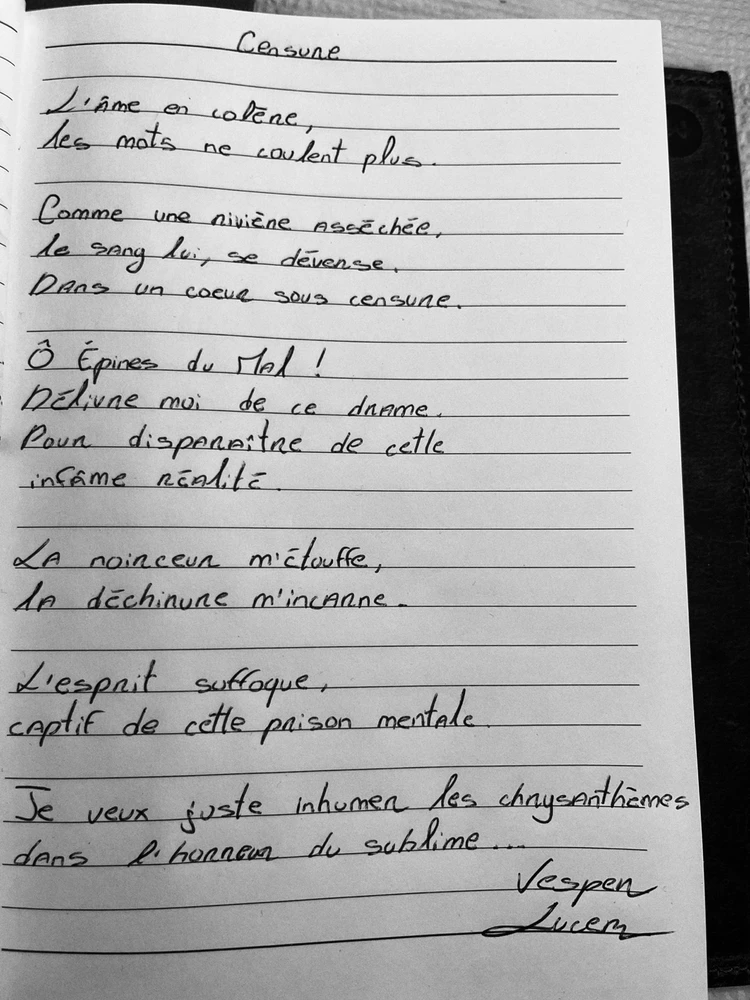 Censure
L'âme en colère,
les mots ne coulent plus.
Comme une rivière asséchée,
le sang lui, se déverse.
Dans un coeur sous censure.
Ô Épines du Mal !
Délivre moi de ce drame.
Pour disparaître de cette
infâme réalité.
La noirceur m'étouffe,
la déchirure m'incarne.
L'esprit suffoque,
captif de cette prison mentale.
Je veux juste inhumer les chrysanthèmes
dans l'horreur du sublime...
Vesper
Lucem